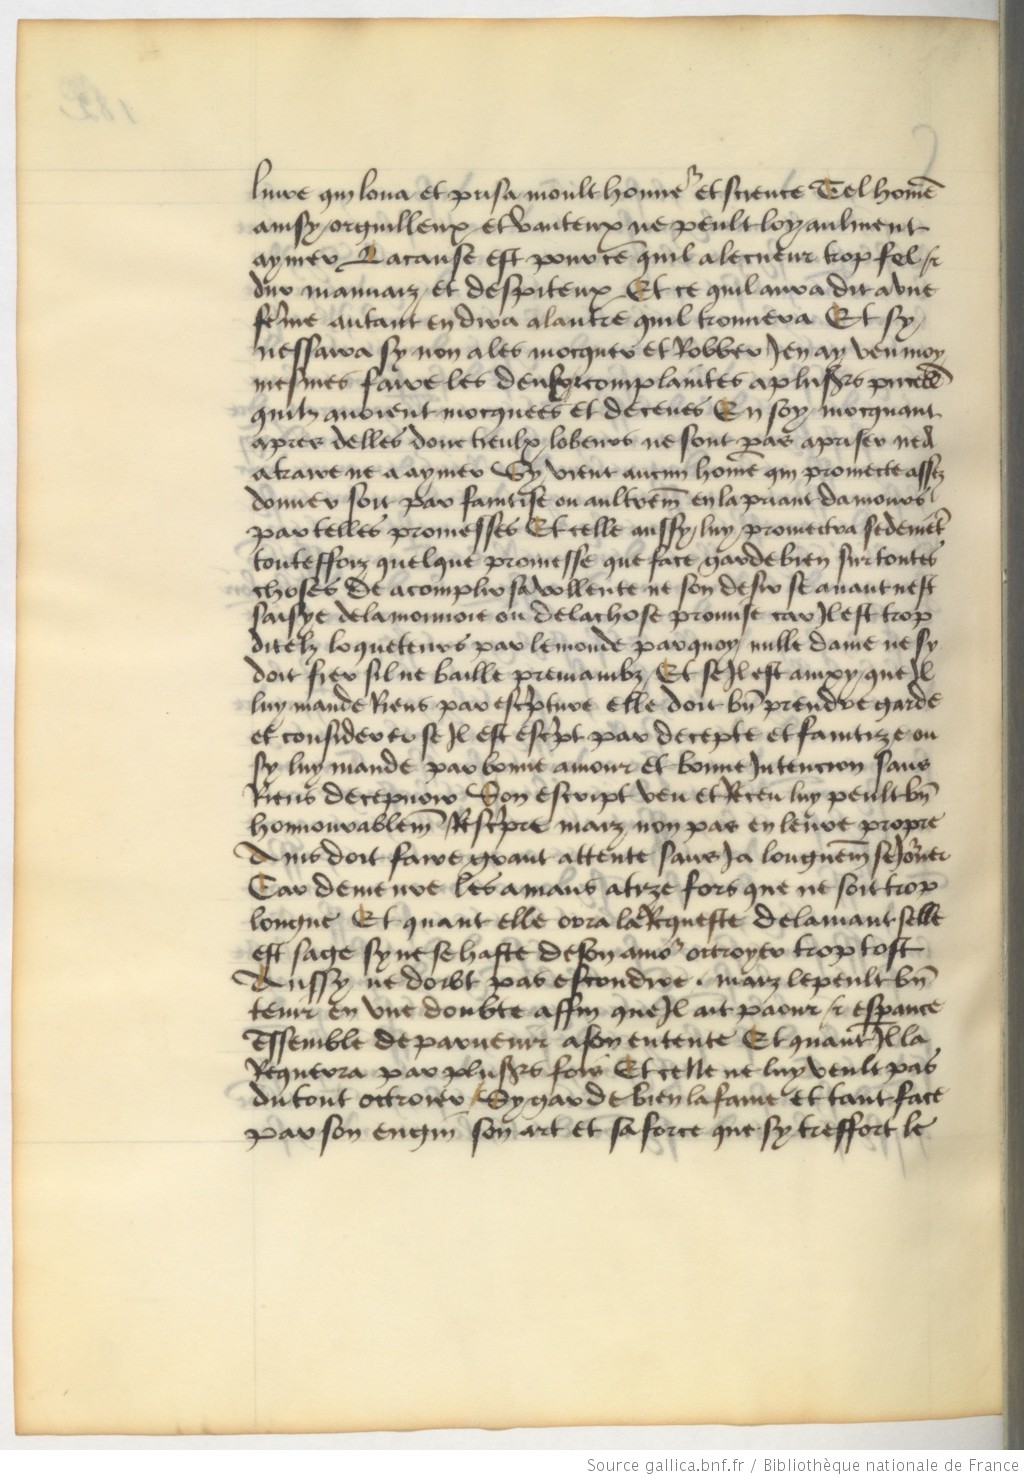 livre qui loua et prisa moult honne͛ et science Tel hom̄e
ainsy orguilleux et vanteux ne peult loyaulment
aymer La cause est pour ce quil a le cueur trop fel et
dur mauvaiz et despiteux Et ce quil aura dit a une
fe͛me autant en dira a lautre quil trouvera Et sy
ne ssaura sy non a les mocquer et Robber Jen ay veu moy
mesmes faire les complaintes a plus͛s pucell̄
quilz avoient mocquees et deceues En soy mocquant
apres delles donc tieulx lobeurs ne sont pas a priser ne
a traire ne a aymer Sy vient aucun hom̄e qui promecte assez
donner soit par faintise ou aultrem̄ en la priant damours
par telles promesses Et celle aussy luy promectra
touteffoiz quelque promesse que face garde bien sur toutes
choses de acomplir sa vollente ne son desir se avant nest
saisye de la monnoie ou de la chose promise car Il est trop
di telz loqueteurs par le monde par quoy nulle dame ne sy
doit fier sil ne baille premiambz Et se Il est ainxy que Il
luy mande Riens par esc͛pture elle doit bn̄ prendre garde
et considerer se Il est esc͛pt par decepte et faintize ou
sy luy mande par bonne amour et bonne Intencion sans
Riens decepvoir Son escript veu et Receu luy peult bn̄
honnourablem̄ Resc͛pre maiz non pas en leure propre
Ains doit faire grant attente sans Ja longuem̄ seJo͛ner
Car demeure les amans atize fors que ne soit trop
longue Et quant elle orra la Requeste de lamant selle
est sage sy ne se haste de son amo͛ octroyer trop tost
Aussy ne doibt pas escondire . maiz le peult bn̄
tenir en une doubte affin que Il ait paour et esp̱ance
Essemble de parvenir a son entente Et quant Il la
Requerra par plus͛s fois Et celle ne luy veult pas
du tout octroier Sy garde bien la fame et tant face
par son engin son art et sa force que sy treffort le